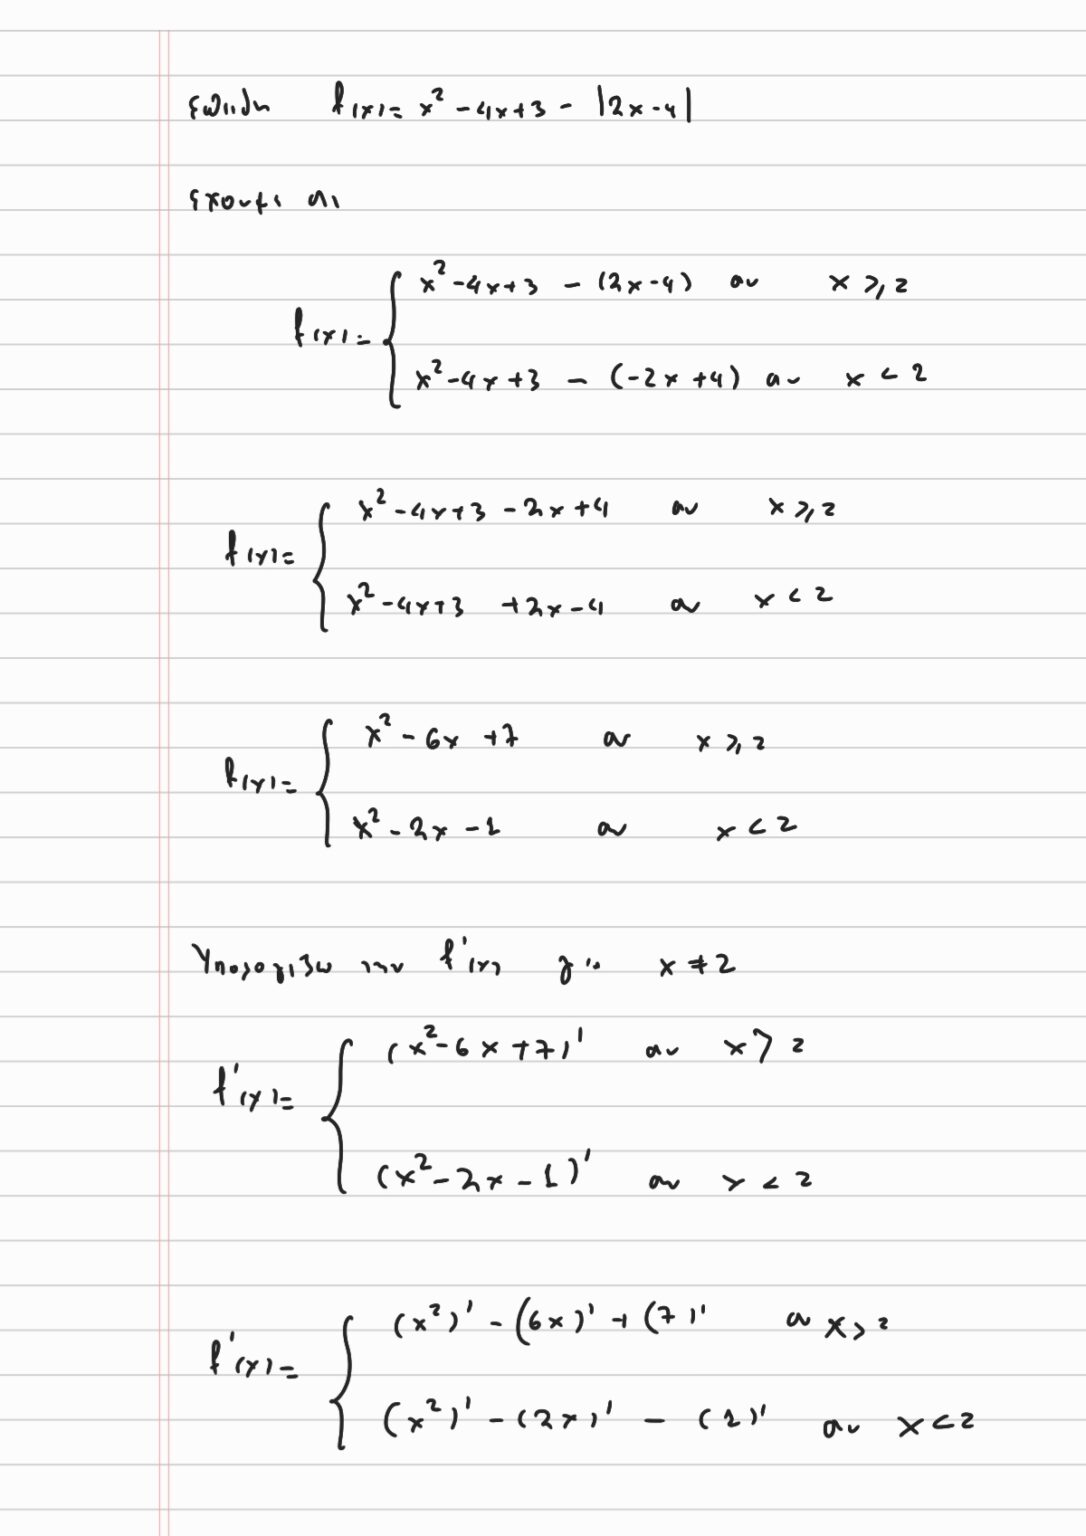 επειδη f(x)= x² - 4x+3 - |2x-4|
εχουμε οτι
f(x)= { x²-4x+3 - (2x-4) αν x ⩾ 2
x²-4x+3 - (-2x+4) αν x < 2
f(x)= { x²-4x+3 -2x+4 αν x ⩾ 2
x²-4x+3 +2x-4 αν x < 2
f(x)= { x² - 6x +7 αν x ⩾ 2
x² - 2x -1 αν x < 2
Υπολογιζω την f'(x) για x ≠ 2
f'(x)= { (x²-6x+7)' αν x > 2
(x²-2x-1)' αν x < 2
f'(x)= { (x²)' - (6x)' + (7)' αν x > 2
(x²)' - (2x)' - (1)' αν x < 2